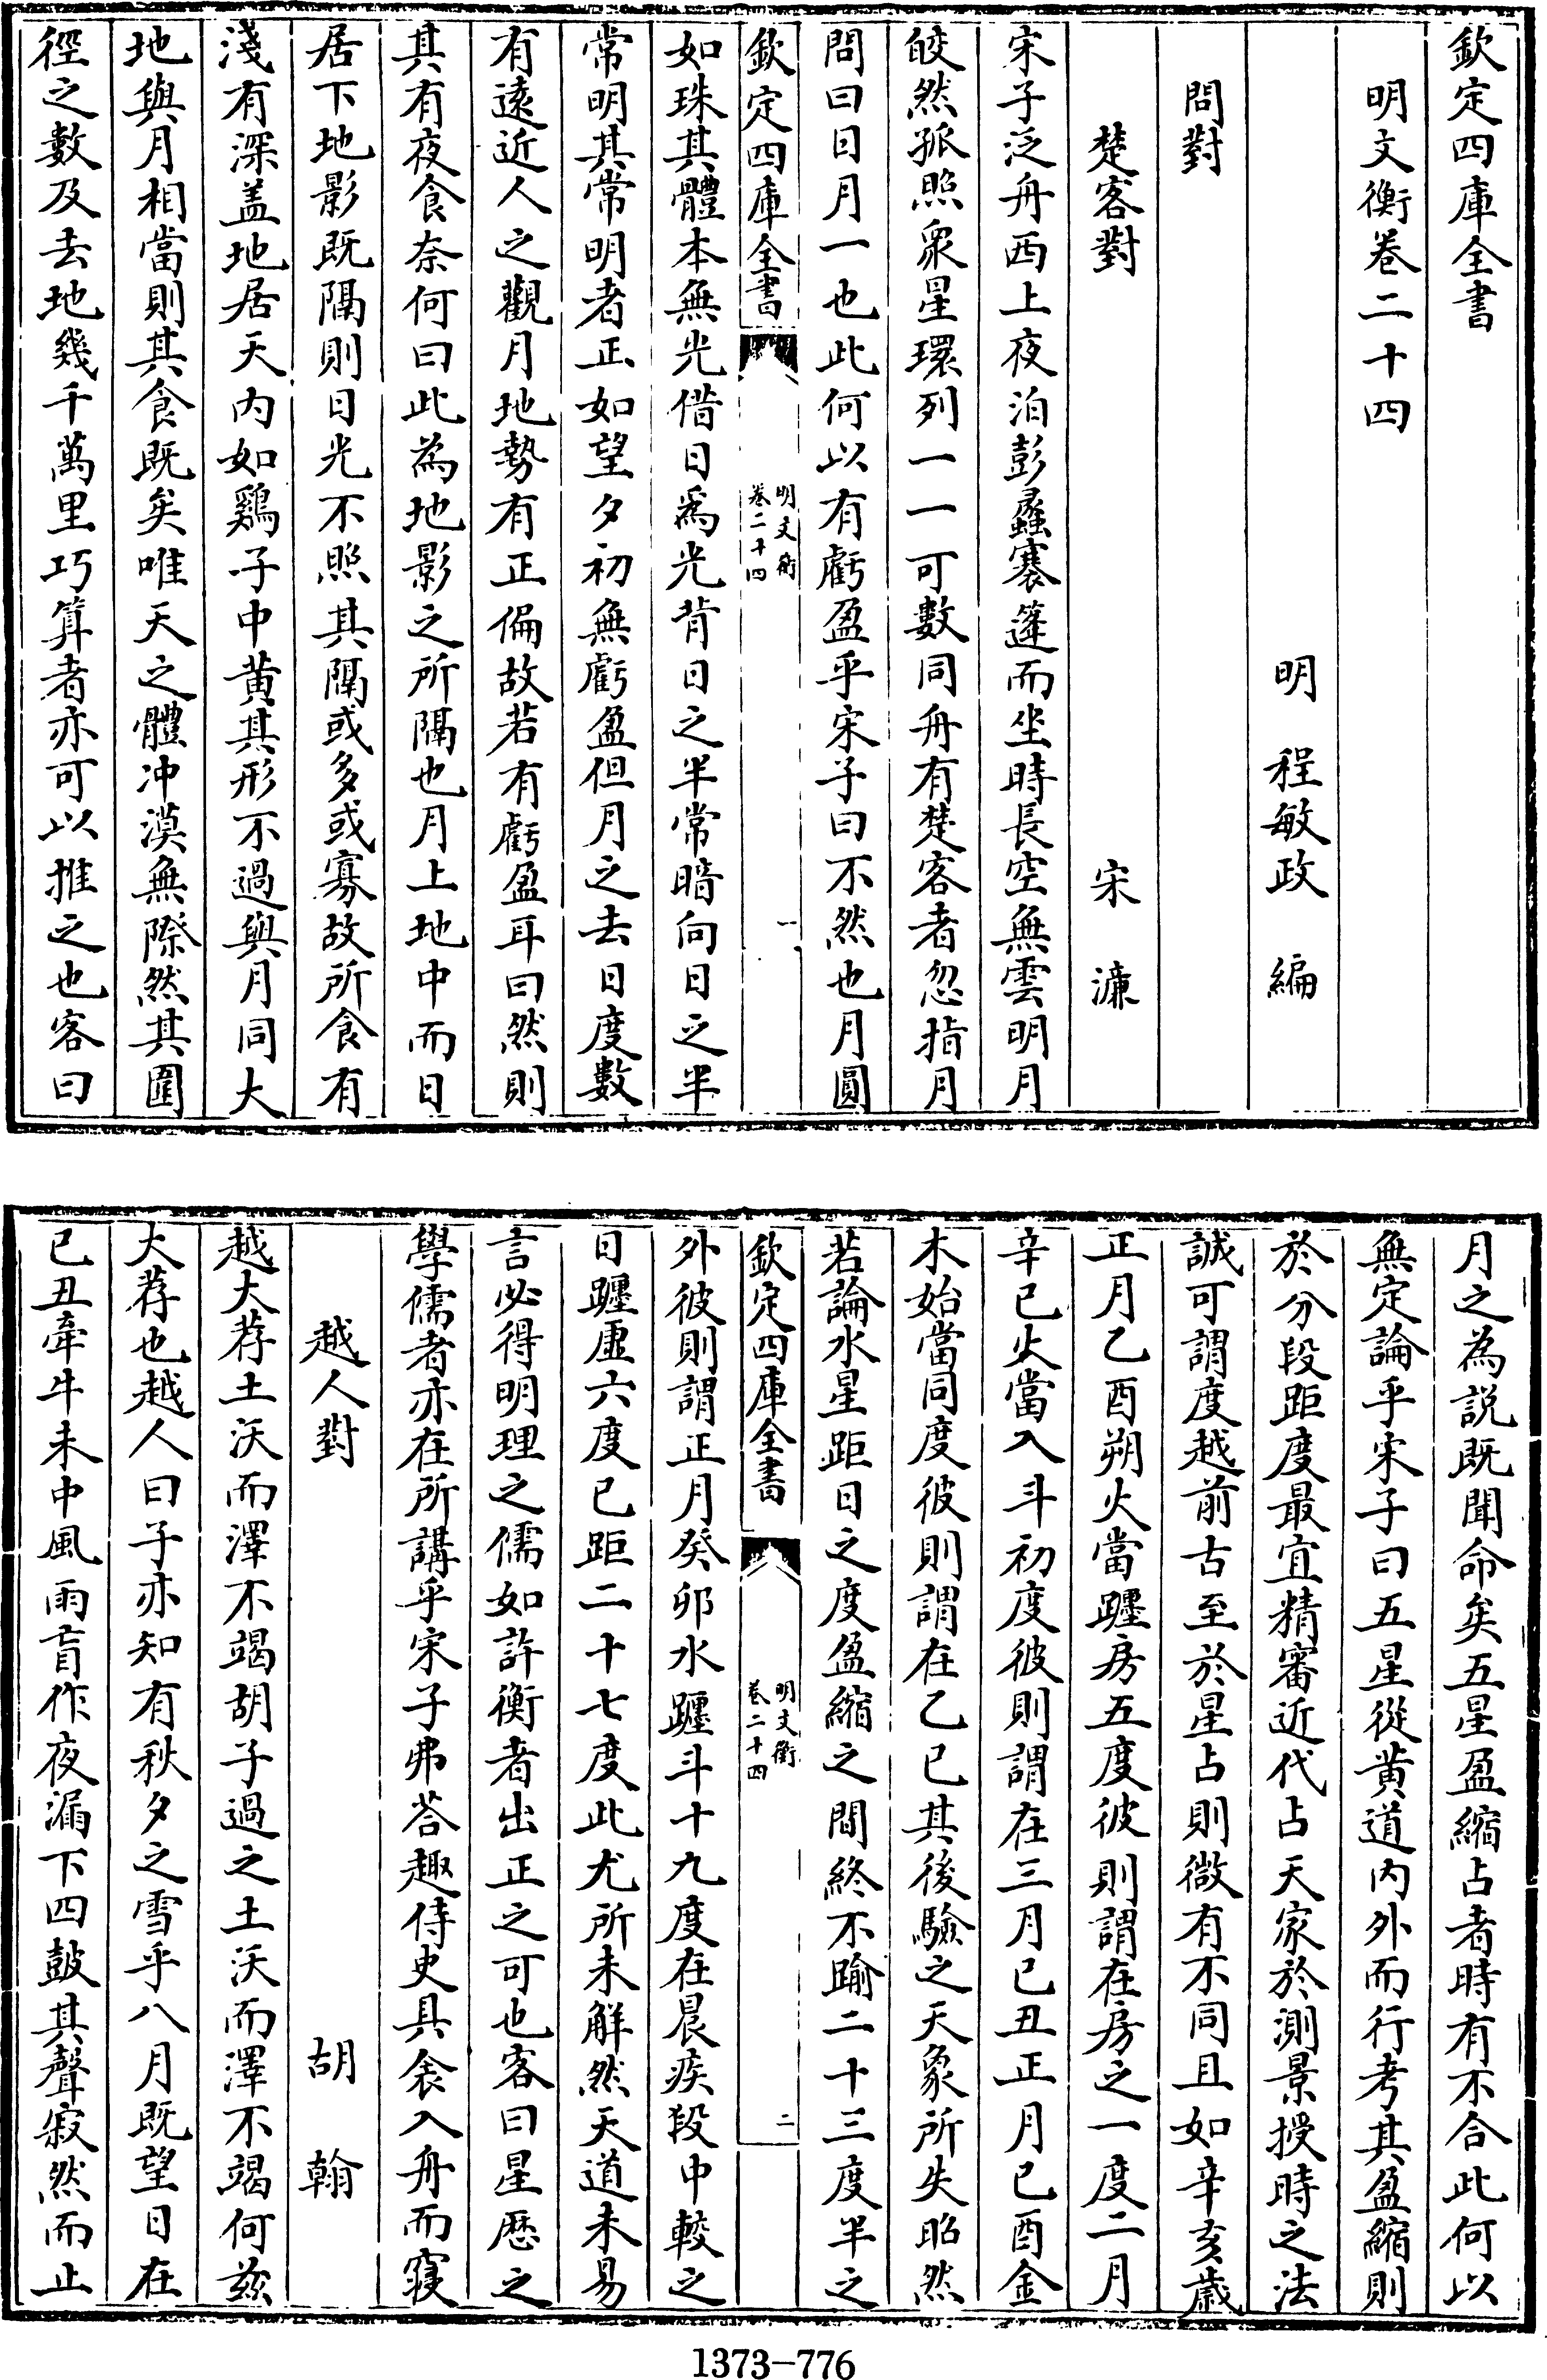 欽定四庫全書
明文衡卷二十四
明　程敏政　編
問對
楚客對　宋　濂
宋子泛舟西上夜泊彭蠡褰篷而坐時長空無雲明月
皎然孤照衆星環列一一可數同舟有楚客者忽指月
問曰日月一也此何以有虧盈乎宋子曰不然也月圓
欽定四庫全書
明文衡
卷二十四
一
如珠其體本無光借日爲光背日之半常暗向日之半
常明其常明者正如望夕初無虧盈但月之去日度數
有遠近人之觀月地勢有正偏故若有虧盈耳曰然則
其有夜食奈何曰此為地影之所隔也月上地中而日
居下地影既隔則日光不照其隔或多或寡故所食有
淺有深盖地居天內如鷄子中黃其形不過與月同大
地與月相當則其食既矣唯天之體冲漠無際然其圍
徑之數及去地幾千萬里巧算者亦可以推之也客曰
月之為說既聞命矣五星盈縮占者時有不合此何以
無定論乎宋子曰五星從黃道內外而行考其盈縮則
於分段距度最宜精審近代占天家於測景授時之法
誠可謂度越前古至於星占則微有不同且如辛亥歲
正月乙酉朔火當躔房五度彼則謂在房之一度二月
辛巳火當入斗初度彼則謂在三月己丑正月己酉金
木始當同度彼則謂在乙巳其後驗之天象所失昭然
若論水星距日之度盈縮之間終不踰二十三度半之
欽定四庫全書
明文衡
卷二十四
二
外彼則謂正月癸卯水躔斗十九度在晨疾段中較之
日躔虛六度已距二十七度此尤所未解然天道未易
言必得明理之儒如許衡者出正之可也客曰星歷之
學儒者亦在所講乎宋子弗荅趣侍史具衾入舟而寢
越人對　胡　翰
越大荐土沃而澤不竭胡子過之土沃而澤不竭何兹
大荐也越人曰子亦知有秋夕之雪乎八月既望日在
己丑牽牛未中風雨盲作夜漏下四鼓其聲寂然而止
1373-776